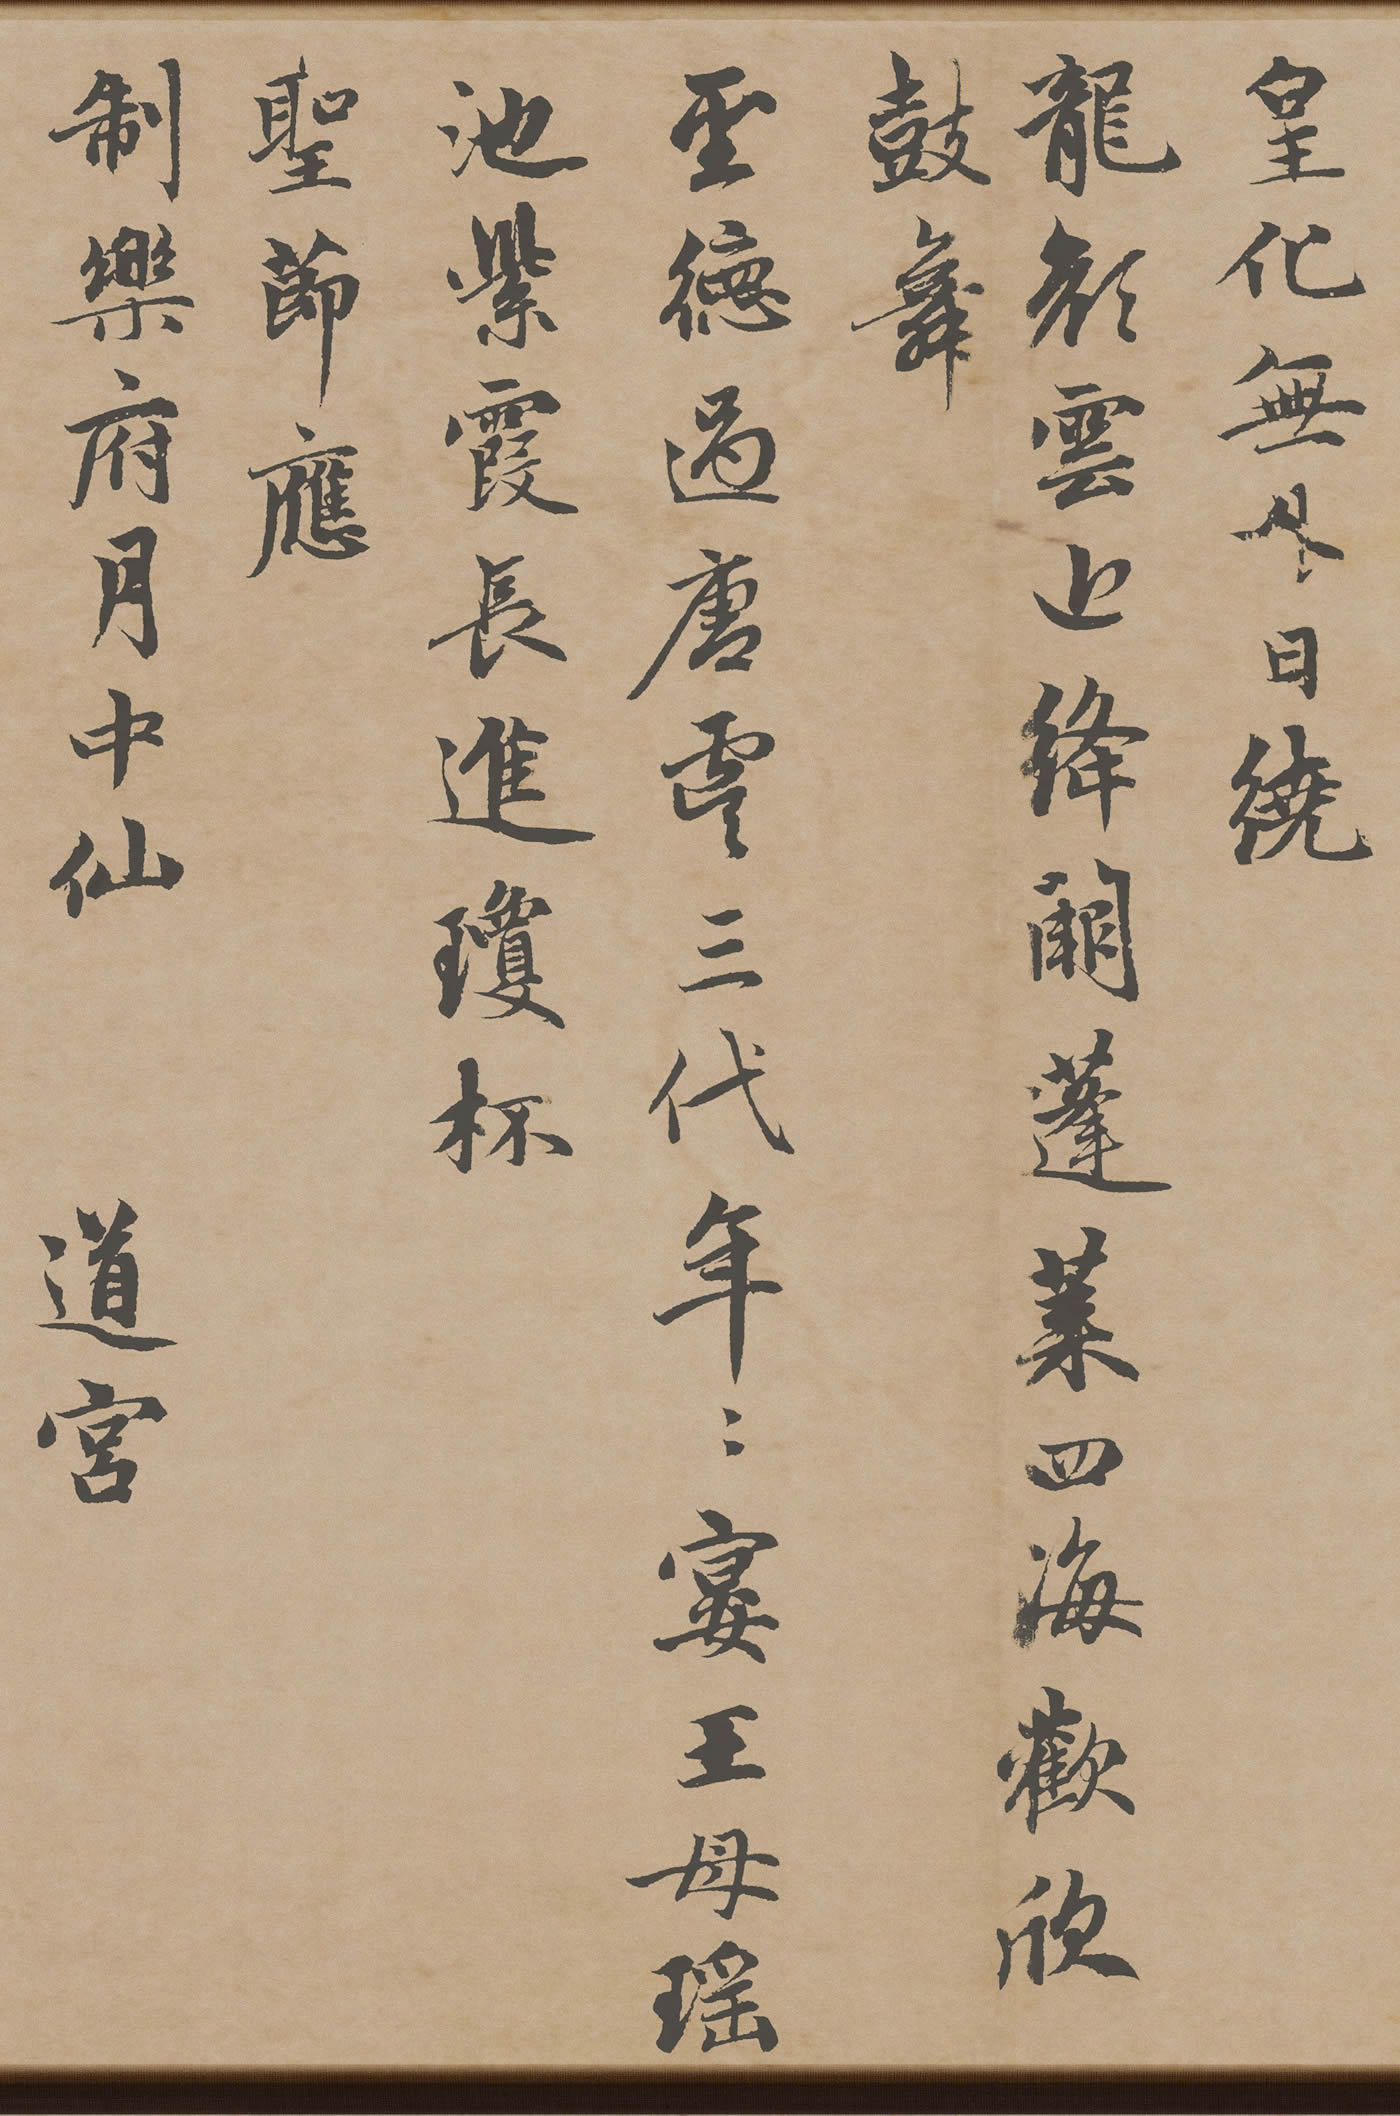 皇化無外日繞
龍顏雲上絳闕蓬萊四海歡欣
鼓舞
聖德過唐虞三代年〻宴王母瑶
池紫霞長進瓊杯
聖節應
制樂府月中仙　道宮